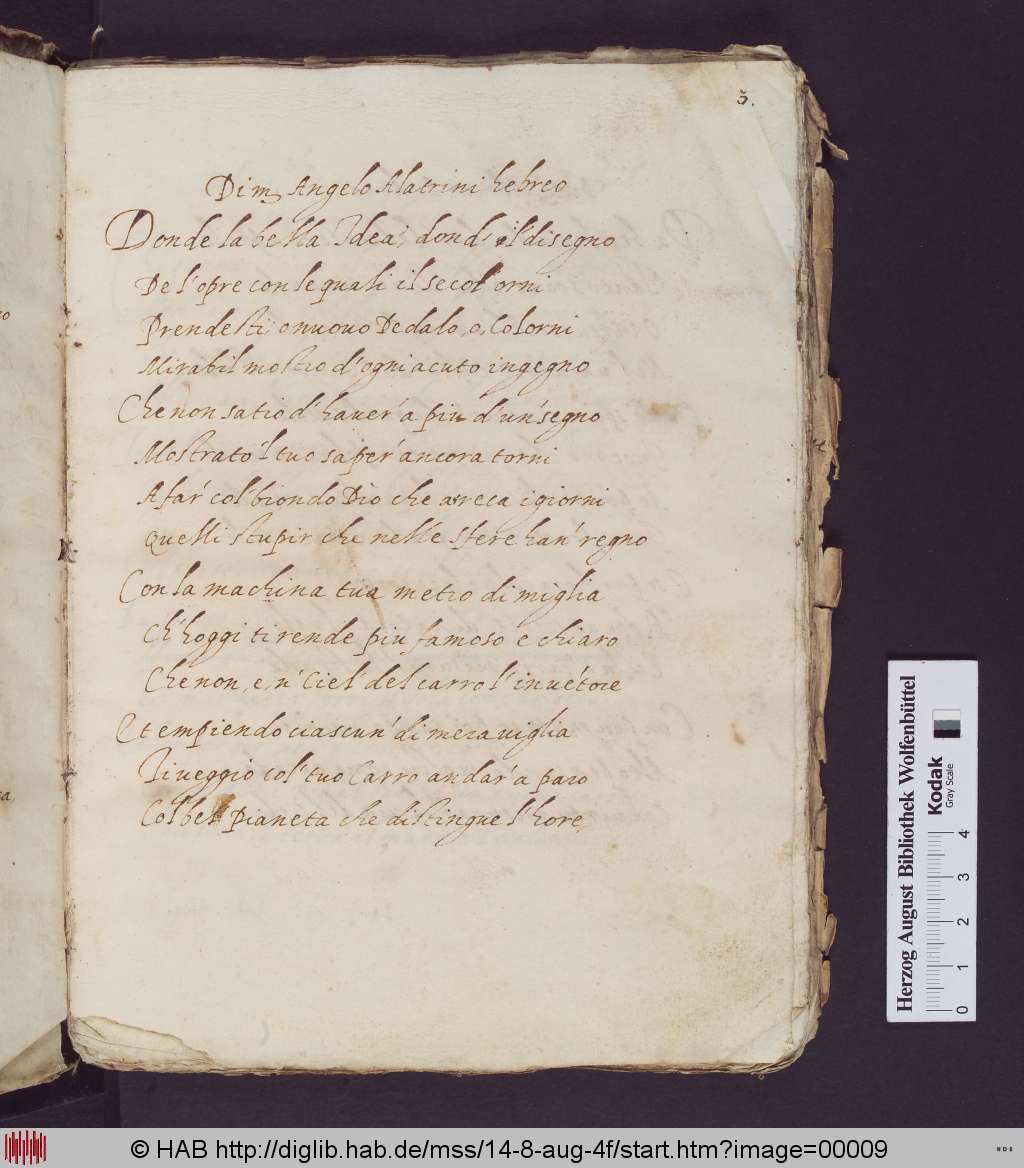 3.
Di m. Angelo Alatrini hebreo
Donde la bella Idea, dond' il disegno
De l'opre con le quali il secol' orni
Prendesti o nuovo Dedalo, o, Colorni
Mirabil mostro d'ogni acuto ingegno
Che non satio d'haver' a piu d'un' segno
Mostrato 'l tuo saper' ancora torni
A far' col' biondo Dio che arreca i giorni
Quelli stupir che nelle sfere han' regno
Con la machina tua metro di miglia
Ch'hoggi ti rende piu famoso e chiaro
Che non, e, n' Ciel' del carro l'
Et empiendo ciascun' di meraviglia
Ti veggio col' tuo Carro andar' a paro
Col bel Pianeta che distingue l'hore,
Herzog August Bibliothek Wolfenbüttel
Kodak
Gray Scale
0 1 2 3 4
© HAB http://diglib.hab.de/mss/14-8-aug-4f/start.htm?image=00009